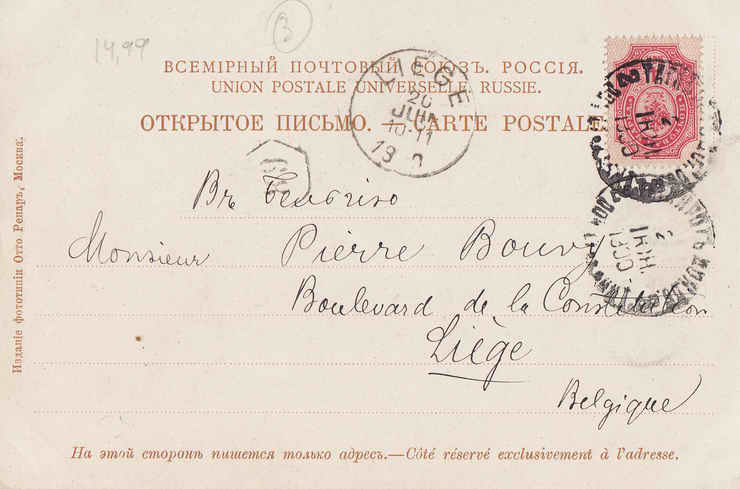 14,99
3
ВСЕМІРНЫЙ ПОЧТОВЫЙ СОЮЗЪ. РОССІЯ.
UNION POSTALE UNIVERSELLE. RUSSIE.
ОТКРЫТОЕ ПИСЬМО. — CARTE POSTALE
LIEGE
20
JUIN
10-11
19
Въ Бельгію
Monsieur Pierre Bouvy
Boulevard de la Constitution
Liège
Belgique
На этой сторонѣ пишется только адресъ.—Côté réservé exclusivement à l'adresse.
Изданіе фототипіи Отто Ренаръ, Москва.